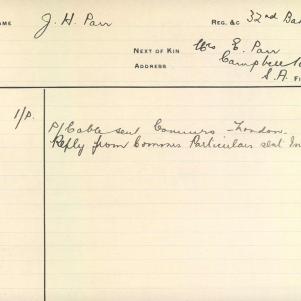 NAME J. H. Parr REG. &C 32nd Bat
NEXT OF KIN Mrs E. Parr
ADDRESS Campbell
S.A. FI
1/P. P/Cable sent Commrs London.
Reply from Commrs Particulars sent In